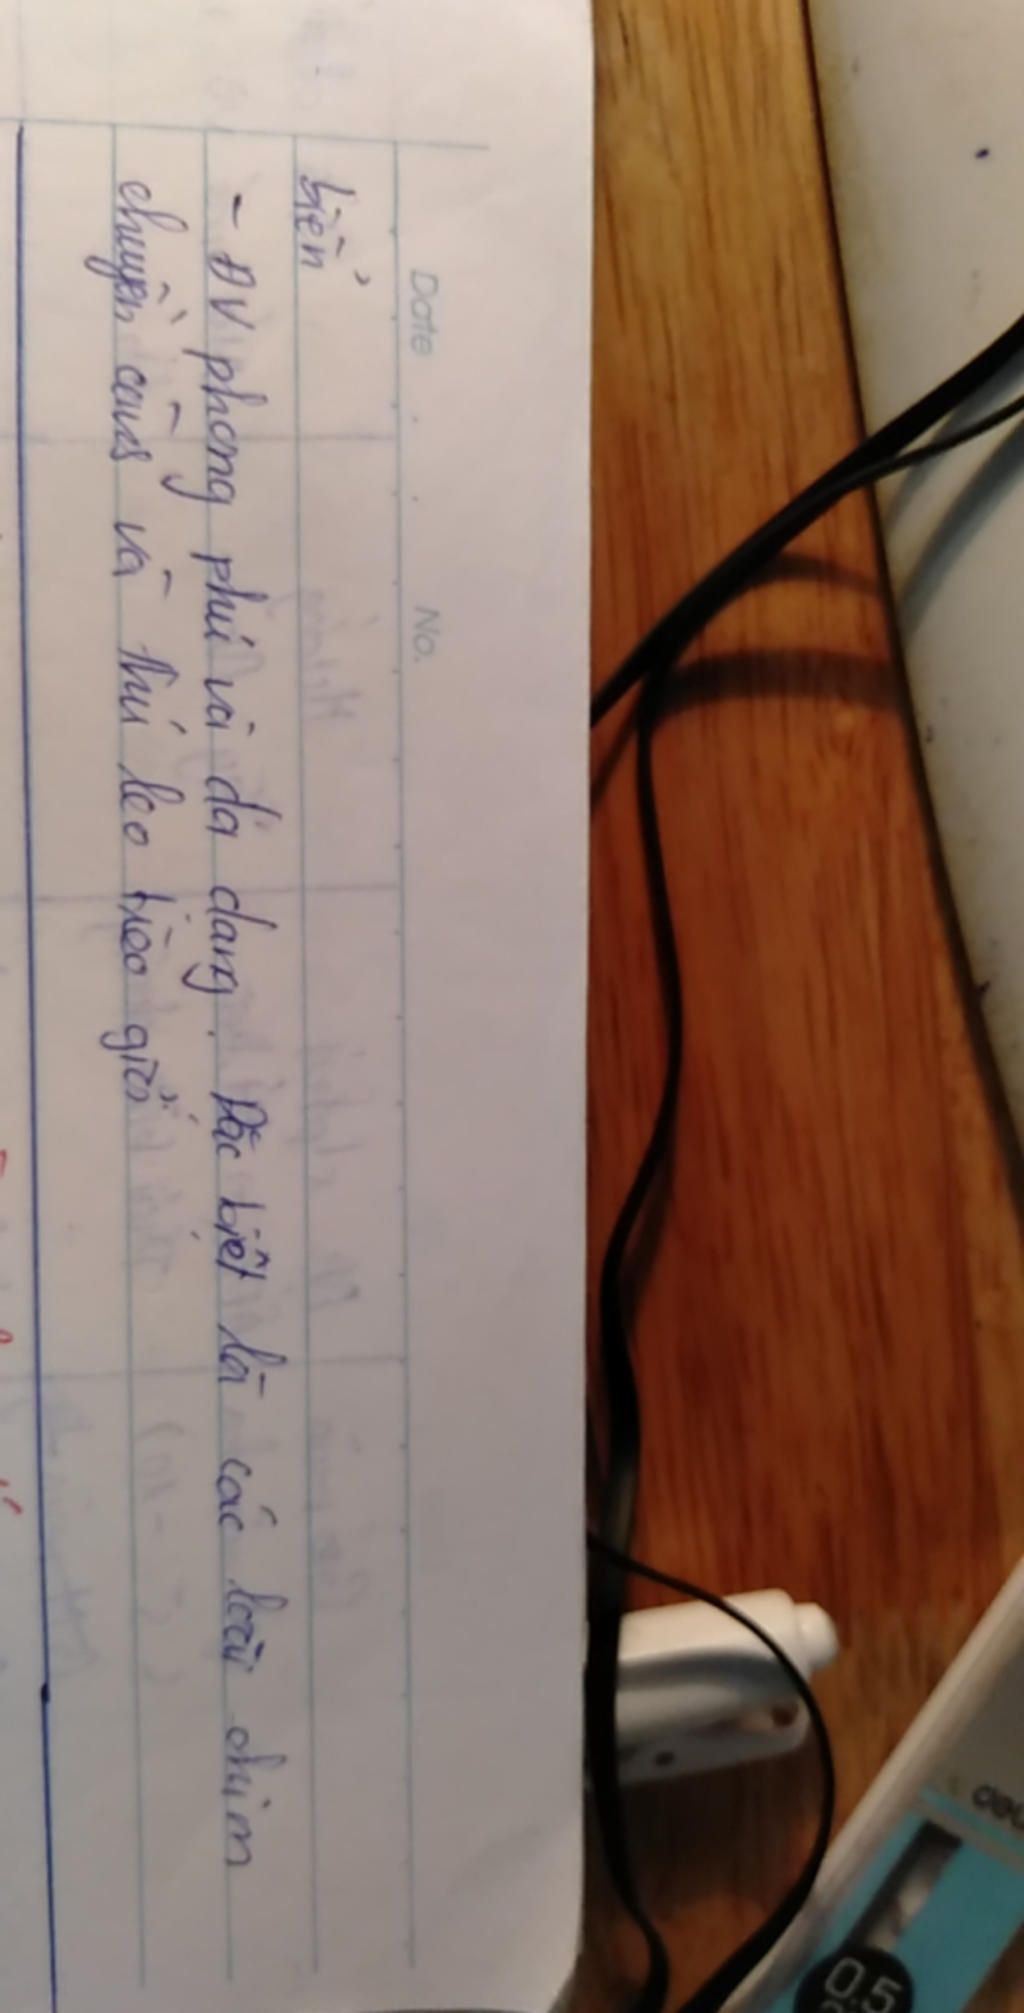 Date . . No.
biển
- ĐV phong phú và đa dạng. Đặc biệt là các loài chim
chuyền cành và thú leo trèo giỏi
deli
0.5